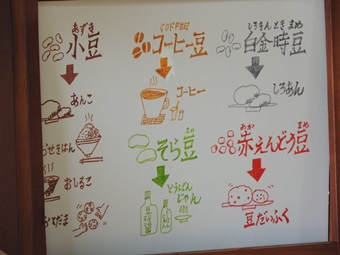 あずき
小豆
あんこ
うせきはん
おしるこ
おてだま
COFFEE
コーヒー豆
コーヒー
そら豆
とうばん
じゃん
しろきんときまめ
白金時豆
しろあん
あか まめ
赤えんどう豆
豆だいふく